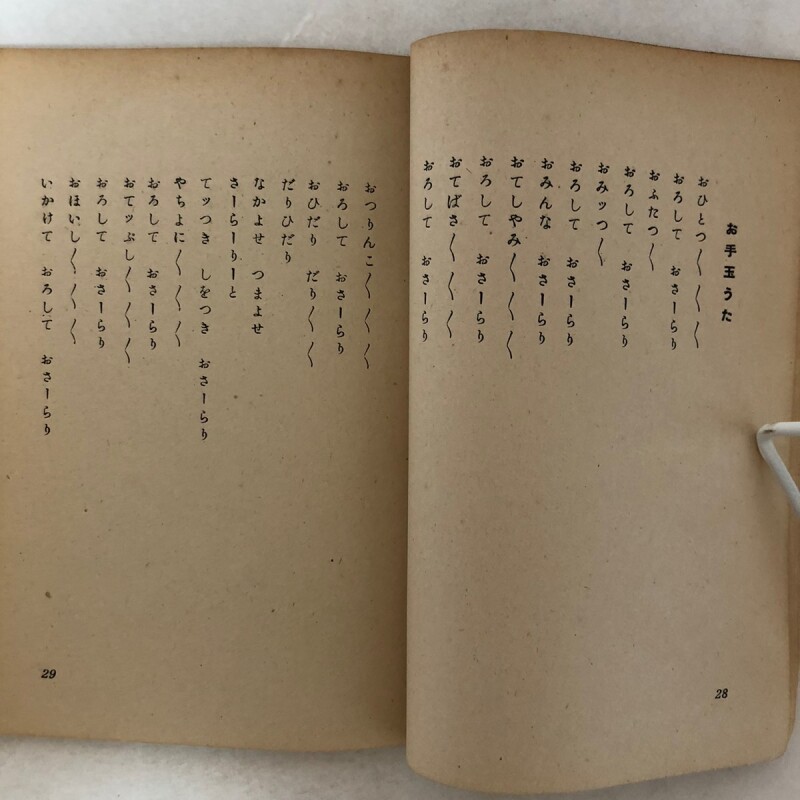 お手玉うた
おひとつ〱〱〱
おろして　おさーらり
おふたつ〱
おろして　おさーらり
おみッつ〱
おろして　おさーらり
おみんな　おさーらり
おてしやみ〱〱〱
おろして　おさーらり
おてばさ〱〱〱
おろして　おさーらり
28
おつりんこ〱〱〱
おろして　おさーらり
おひだり　だり〱〱
だりひだり
なかよせ　つまよせ
さーらーりーと
てッつき　しをつき　おさーらり
やちよに〱〱〱
おろして　おさーらり
おてッぷし〱〱〱
おろして　おさーらり
おほいし〱〱〱
いかけて　おろして　おさーらり
29